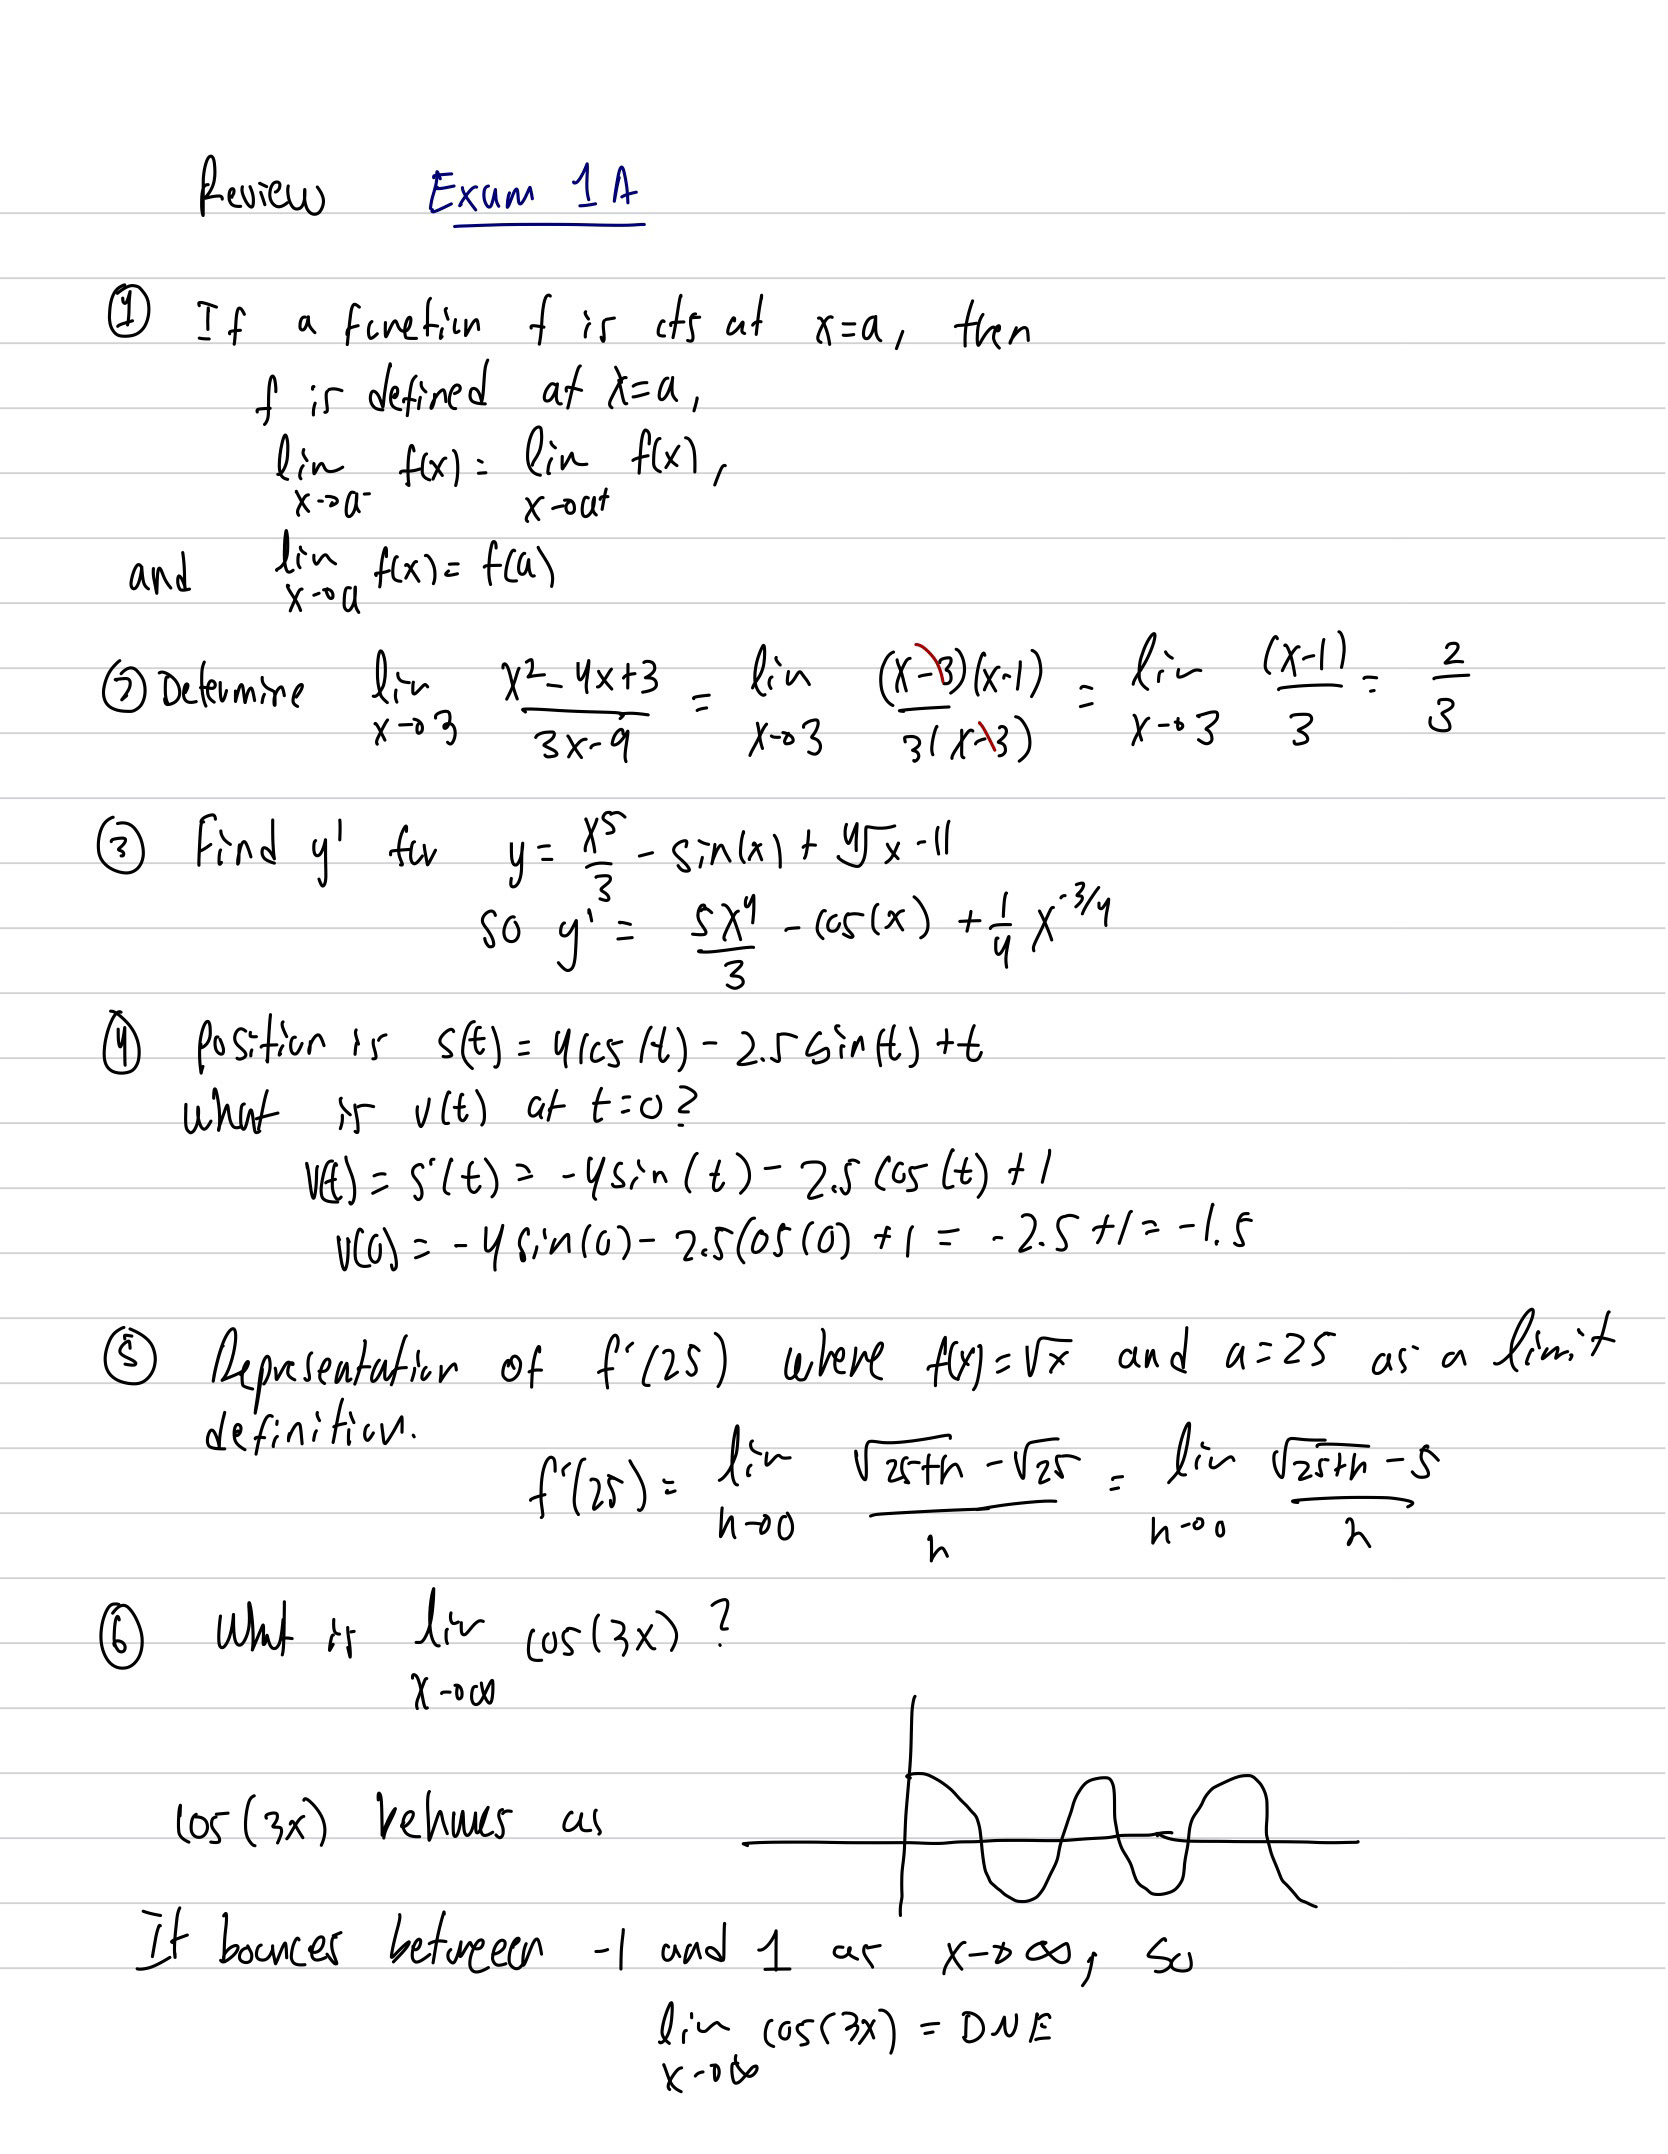 Review Exam 1A
① If a function f is cts at x=a, then
f is defined at x=a,
lim x→a⁻ f(x) = lim x→a⁺ f(x),
and lim x→a f(x) = f(a)
② Determine lim x→3 (x²-4x+3)/(3x-9) = lim x→3 ((x-3)(x-1))/(3(x-3)) = lim x→3 (x-1)/3 = 2/3
③ Find y' for y = x⁵/3 - sin(x) + ⁴√x - 11
so y' = 5x⁴/3 - cos(x) + 1/4 x^(-3/4)
④ Position is s(t) = 4cos(t) - 2.5sin(t) + t
what is v(t) at t=0?
v(t) = s'(t) = -4sin(t) - 2.5cos(t) + 1
v(0) = -4sin(0) - 2.5cos(0) + 1 = -2.5+1 = -1.5
⑤ Representation of f'(25) where f(x)=√x and a=25 as a limit
definition.
f'(25) = lim h→0 (√(25+h) - √25)/h = lim h→0 (√(25+h) - 5)/h
⑥ What is lim x→∞ cos(3x)?
cos(3x) behaves as
It bounces between -1 and 1 as x→∞, so
lim x→∞ cos(3x) = DNE